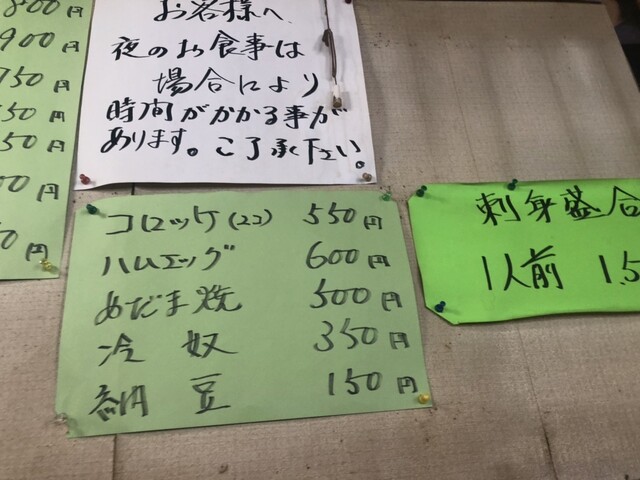 800円
900円
750円
50円
50円
00円
0円
お客様へ
夜のお食事は
場合により
時間がかかる事が
あります。ご了承下さい。
コロッケ(2コ) 550円
ハムエッグ 600円
めだま焼 500円
冷奴 350円
納豆 150円
刺身盛合
1人前 1,5